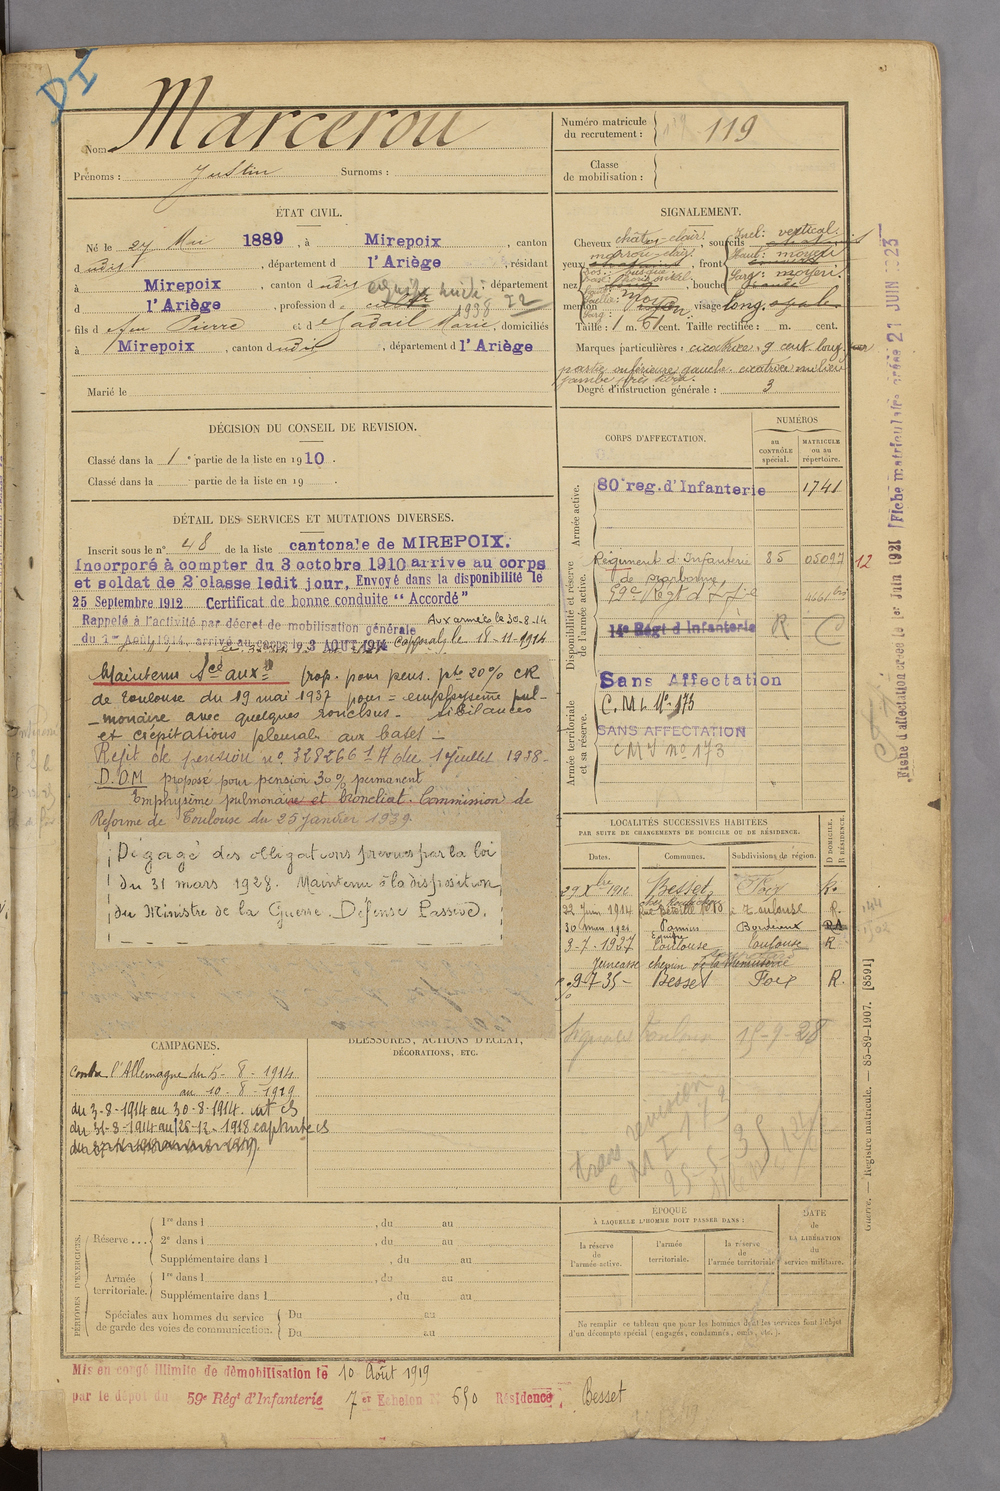 DI
Nom : Marcerou
Prénoms : Justin Surnoms :
Numéro matricule du recrutement : 119
Classe de mobilisation :
ÉTAT CIVIL.
Né le 27 Mai 1889, à Mirepoix, canton
dudit, département d l'Ariège, résidant
à Mirepoix, canton dudit, département
d l'Ariège, profession de
fils de feu Pierre et de Marie, domiciliés
à Mirepoix, canton dudit, département d l'Ariège
Marié le
SIGNALEMENT.
Cheveux chât. clair, sourcils
Incl: vertical
yeux marron clair, front Haut: moyen
nez, bouche Larg: moyen
menton, visage long.
Taille : 1 m. 61 cent. Taille rectifiée : m. cent.
Marques particulières : cicatrice 9 cent. long. sur
partie antérieure gauche. cicatrice milieu
jambe
Degré d'instruction générale : 3
DÉCISION DU CONSEIL DE REVISION.
Classé dans la 1e partie de la liste en 1910.
Classé dans la partie de la liste en 19 .
DÉTAIL DES SERVICES ET MUTATIONS DIVERSES.
Inscrit sous le n° 48 de la liste cantonale de MIREPOIX.
Incorporé à compter du 3 octobre 1910 arrivé au corps
et soldat de 2e classe ledit jour, Envoyé dans la disponibilité le
25 Septembre 1912 Certificat de bonne conduite "Accordé"
Rappelé à l'activité par décret de mobilisation générale Aux armées le 30-8-14
du 1er Août 1914, arrivé au corps le 3 AOUT 1914 Caporal le 18-11-1914
Maintenu Sce auxre prop. pour pens. pte 20% CR
de Toulouse du 19 mai 1937 pour = emphysème pul-
-monaire avec quelques ronchus - sibilances
et crépitations pleurales aux bases -
Refit de pension n° 328266 du 1 Juillet 1938-
D.OM proposé pour pension 30% permanent
Emphysème pulmonaire et bronchiat. Commission de
Réforme de Toulouse du 25 janvier 1939
Dégagé des obligations prévues par la loi
du 31 mars 1928. Maintenu à la disposition
du Ministre de la Guerre. Défense Passive.
CORPS D'AFFECTATION.
NUMÉROS
au CONTRÔLE spécial.
MATRICULE ou au répertoire.
Armée active.
80e reg. d'Infanterie 1741
Disponibilité et réserve de l'armée active.
Régiment d'Infanterie 85 05097 12
de Narbonne
14e Régt d'Infanterie R C
Armée territoriale et sa réserve.
Sans Affectation
C.M.I. N° 173
SANS AFFECTATION
CMI n° 173
LOCALITÉS SUCCESSIVES HABITÉES
PAR SUITE DE CHANGEMENTS DE DOMICILE OU DE RÉSIDENCE.
Dates. Communes. Subdivisions de région. D DOMICILE. R RÉSIDENCE.
29 Xbre 1912 Besset Foix R.
22 Juin 1914 Toulouse R.
30 mars 1921 Pamiers Bordeaux
9-7-1927 Toulouse Toulouse R
chemin de la
9-7-35- Besset Foix R.
15-9-28
trans revision
CMI 173
25-5-35
CAMPAGNES.
BLESSURES, ACTIONS D'ÉCLAT, DÉCORATIONS, ETC.
Contre l'Allemagne du 5-8-1914
au 10-8-1919
du 3-8-1914 au 30-8-1914. int CS
du 31-8-1914 au 26-12-1918 captivité CS
PÉRIODES D'EXERCICES.
Réserve . . . 1re dans l , du au
2e dans l , du au
Supplémentaire dans l , du au
Armée territoriale. 1re dans l , du au
Supplémentaire dans l , du au
Spéciales aux hommes du service de garde des voies de communication. Du au
Du au
ÉPOQUE
À LAQUELLE L'HOMME DOIT PASSER DANS :
la réserve de l'armée active.
l'armée territoriale.
la réserve de l'armée territoriale
DATE de LA LIBÉRATION du service militaire.
Ne remplir ce tableau que pour les hommes dont les services font l'objet
d'un décompte spécial (engagés, condamnés, omis, etc.).
Mis en congé illimité de démobilisation le 10 Août 1919
par le dépôt du 59e Régt d'Infanterie 7er Echelon N° 650 Résidence : Besset
Fiche d'affectation créée le 1er Juin 1921
Fiche matriculaire créée 21 JUIN 1923
Guerre. — Registre matricule. — 85-89-1907. [8591]